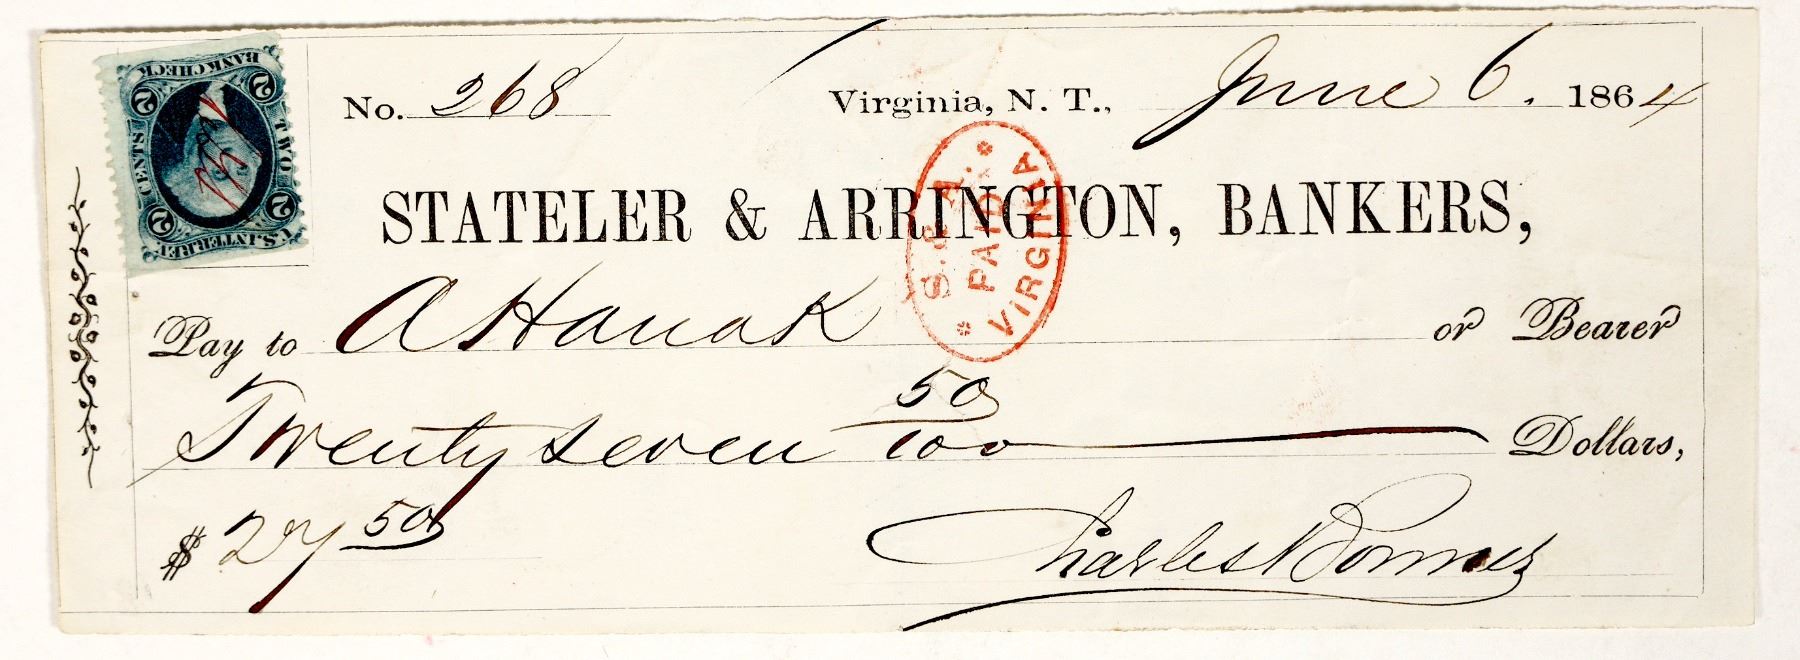 BANK CHECK
2 2
TWO CENTS
2 2
U.S. INTER. REV.
No. 268 Virginia, N. T., June 6. 1864
STATELER & ARRINGTON, BANKERS,
S. & A.
PAID
VIRGINIA
Pay to A Hanak or Bearer
Twenty seven 50/100 Dollars,
$ 27 50
Charles Bonner